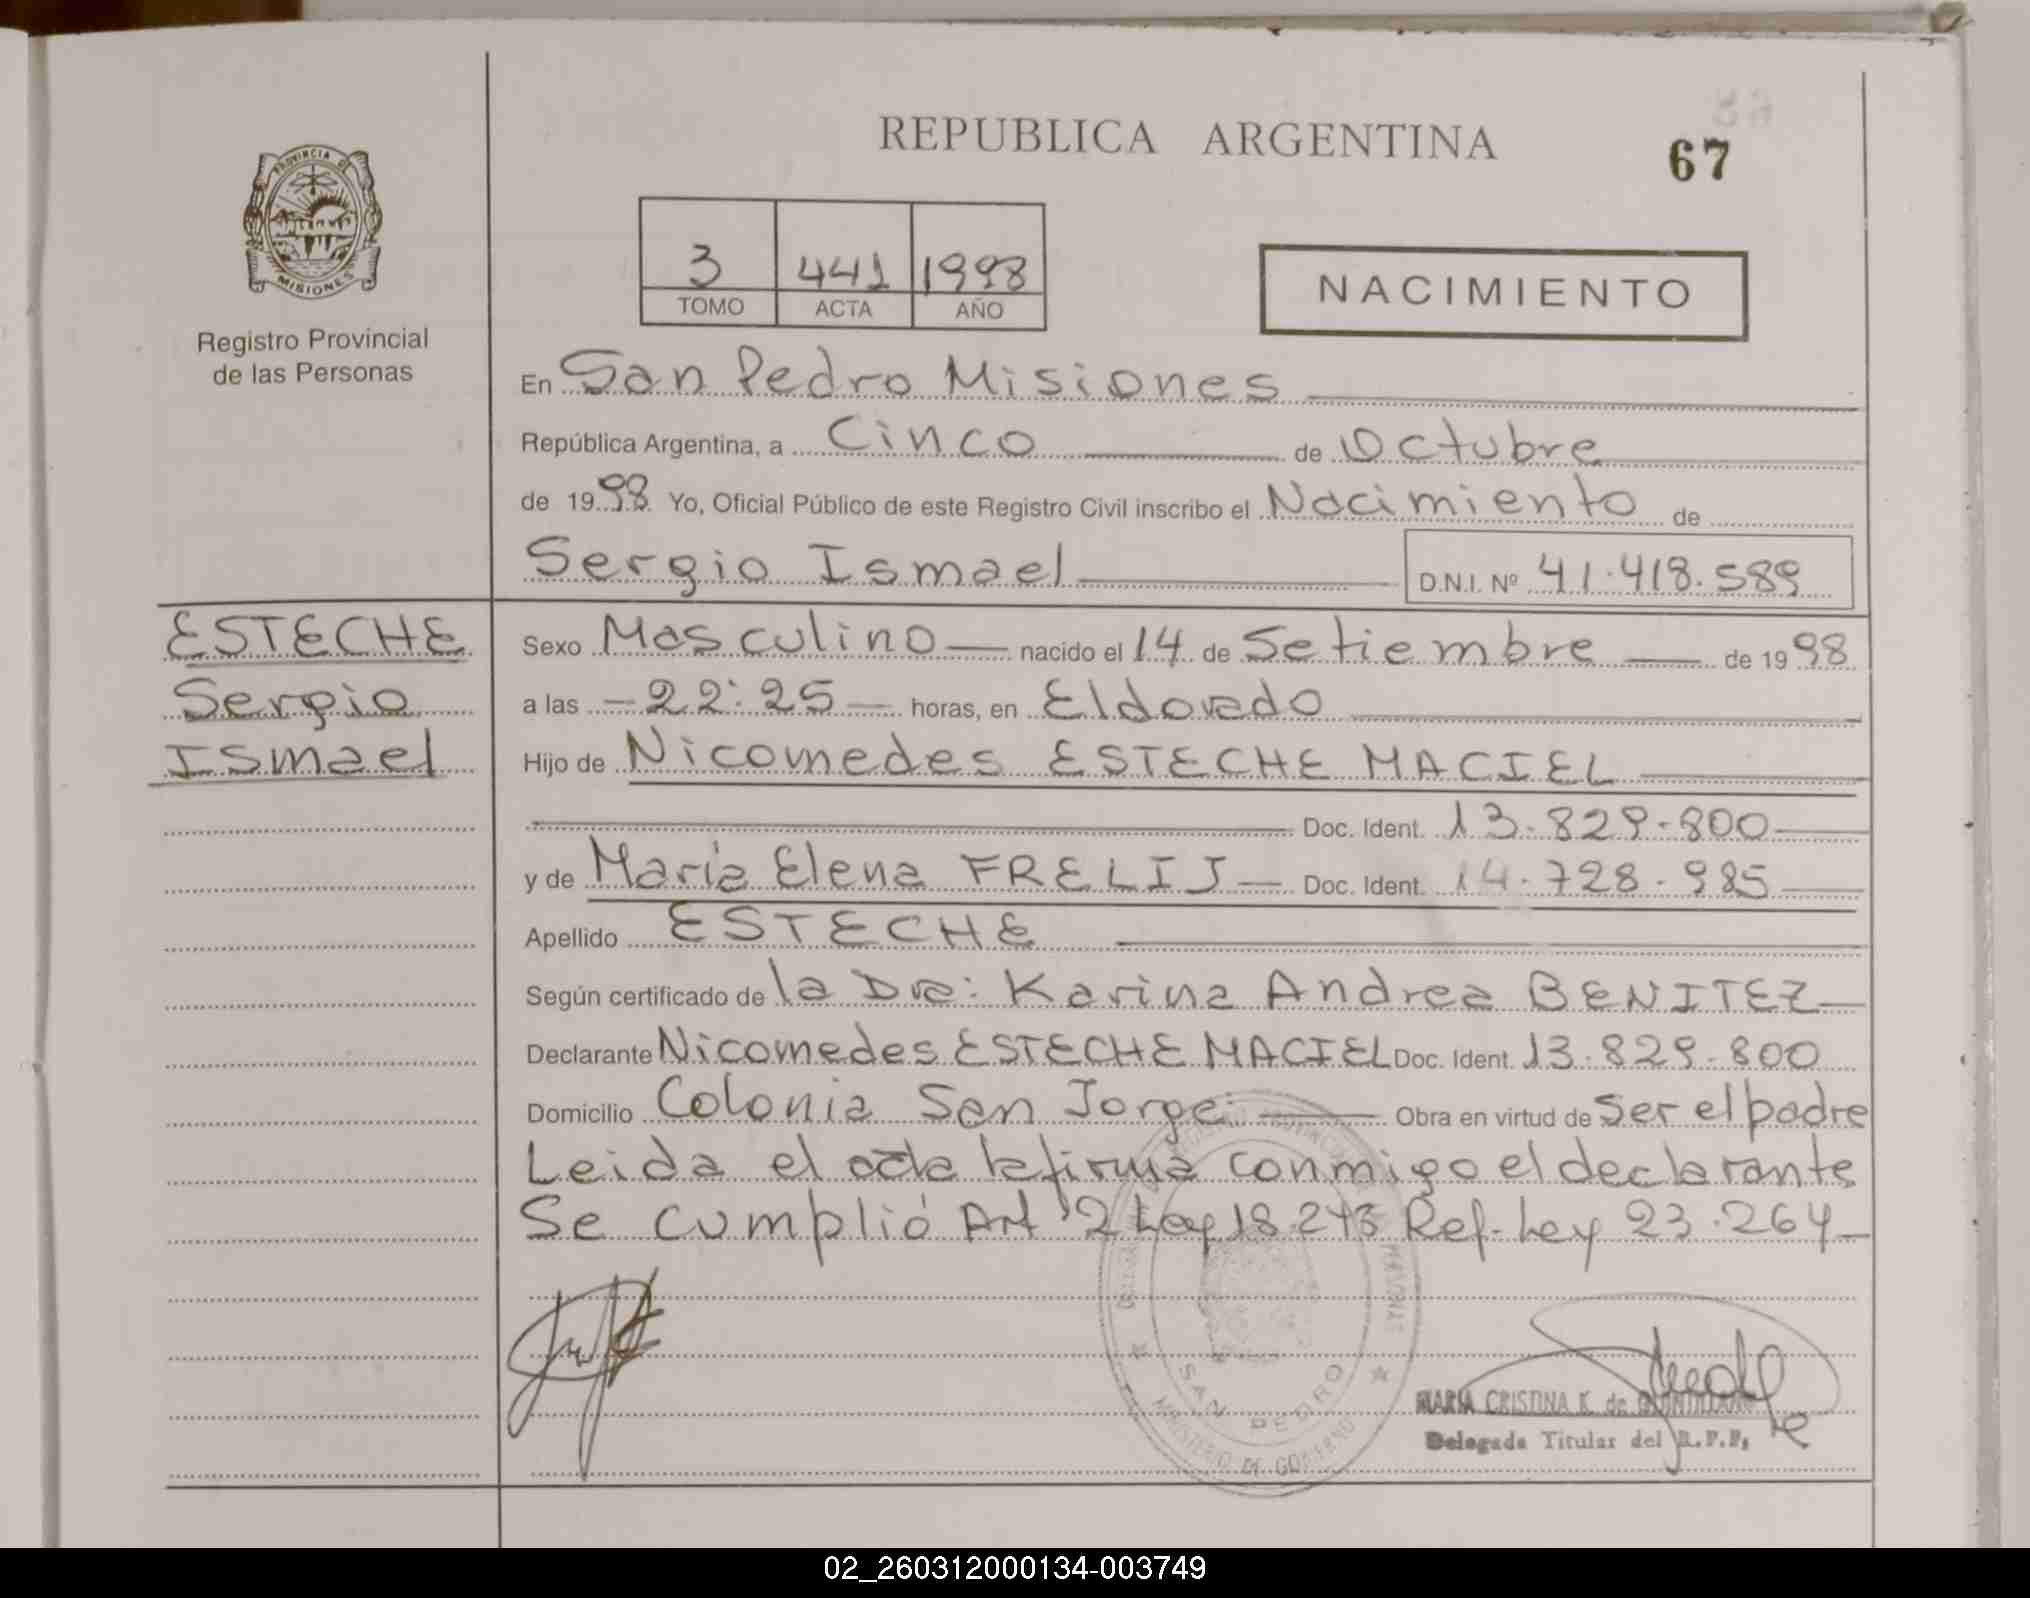 REPUBLICA ARGENTINA
67
PROVINCIA DE
MISIONES
Registro Provincial
de las Personas
3 441 1998
TOMO ACTA AÑO
NACIMIENTO
En San Pedro Misiones
República Argentina, a Cinco de Octubre
de 1998 Yo, Oficial Público de este Registro Civil inscribo el Nacimiento de
Sergio Ismael D.N.I. Nº 41.418.589
ESTECHE
Sergio
Ismael
Sexo Masculino nacido el 14 de Setiembre de 1998
a las 22:25 horas, en Eldorado
Hijo de Nicomedes ESTECHE MACIEL
Doc. Ident. 13.829.800
y de María Elena FRELIJ Doc. Ident. 14.728.985
Apellido ESTECHE
Según certificado de la Dra: Karina Andrea BENITEZ
Declarante Nicomedes ESTECHE MACIEL Doc. Ident. 13.829.800
Domicilio Colonia San Jorge Obra en virtud de ser el padre
Leida el acta la firma conmigo el declarante
Se cumplió Art 2 Ley 18.248 Ref-Ley 23.264
SAN PEDRO
MINISTERIO DE GOBIERNO
MARIA CRISTINA K. de
Delegada Titular del R.P.P.
02_260312000134-003749